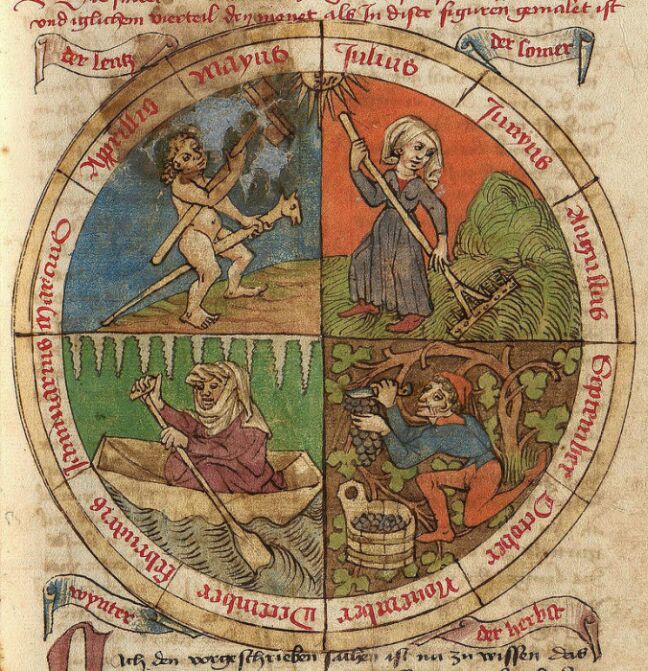 vnd iglichem vierteil der monet als In diser figuren gemalet ist
der lentz
der somer
Mayus
Julius
Apprillis
Junyus
Augustus
Januarius
September
februarius
October
December
Nouember
wynter
der herbst
den vorgeschriben sachen ist nu zu wissen das